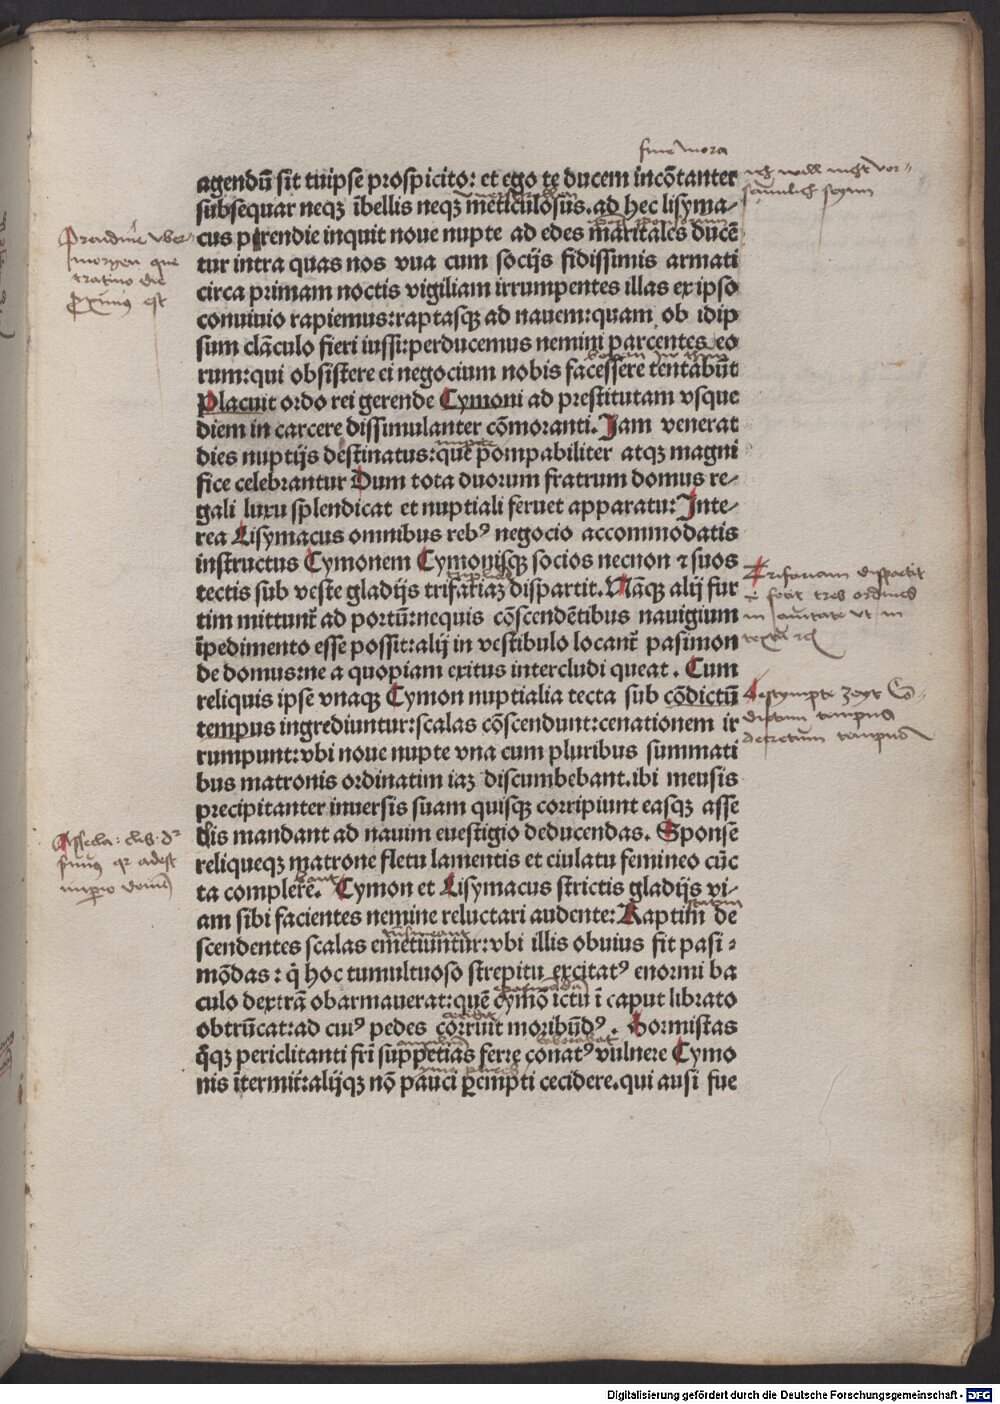 sine mora
agendū sit tuipse prospicito: et ego te ducem incōtanter
subsequar neqꝫ ībellis neqꝫ meticulosus. ad hec lisyma-
cus perendie inquit noue nupte ad edes maritales ducē
tur intra quas nos vua cum socijs fidissimis armati
circa primam noctis vigiliam irrumpentes illas ex ipso
conuiuio rapiemus: raptasqꝫ ad nauem: quam ob idip
sum clāculo fieri iussi: perducemus nemini parcentes eo
rum: qui obsistere ei negocium nobis facessere tentabūt
Placuit ordo rei gerende Cymoni ad prestitutam vsque
diem in carcere dissimulanter cōmoranti. Jam venerat
dies nuptijs destinatus: que pompabiliter atqꝫ magni
fice celebrantur Dum tota duorum fratrum domus re-
gali luxu splendicat et nuptiali feruet apparatu: Inte-
rea Lisymacus omnibus rebꝰ negocio accommodatis
instructus Cymonem Cymonisqꝫ socios necnon ⁊ suos
tectis sub veste gladijs trifariaꝫ dispartit. Nāqꝫ alij fur
tim mittunt̄ ad portū: nequis cōscendētibus nauigium
īpedimento esse possit: alij in vestibulo locant̄ pasimon
de domus: ne a quopiam exitus intercludi queat. Cum
reliquis ipse vnaqꝫ Cymon nuptialia tecta sub cōdictū
tempus ingrediuntur: scalas cōscendunt: cenationem ir
rumpunt: vbi noue nupte vna cum pluribus summati
bus matronis ordinatim iaꝫ discumbebant. ibi mensis
precipitanter inuersis suam quisqꝫ corripiunt easqꝫ asse
clis mandant ad nauim euestigio deducendas. Sponse
reliqueqꝫ matrone fletu lamentis et eiulatu femineo cūc
ta complere. Cymon et Lisymacus strictis gladijs vi-
am sibi facientes nemine reluctari audente: Raptim de
scendentes scalas emetiuntur: vbi illis obuius fit pasi-
mōdas: q̄ hoc tumultuoso strepitu excitatꝰ enormi ba
culo dextrā obarmauerat: quē cymō ictu ī caput librato
obtrūcat: ad cuiꝰ pedes corruit moribūdꝰ. Hormistas
q̄qꝫ periclitanti fr̄i suppetias ferre conatꝰ vulnere Cymo
nis ītermit̄: alijqꝫ nō pauci ꝑempti cecidere. qui ausi fue
ich will nicht vor-
morgen que
die
est
Trifariam dispartit
tres ordines
in ut in
tempus
decretum tempus
Digitalisierung gefördert durch die Deutsche Forschungsgemeinschaft - DFG